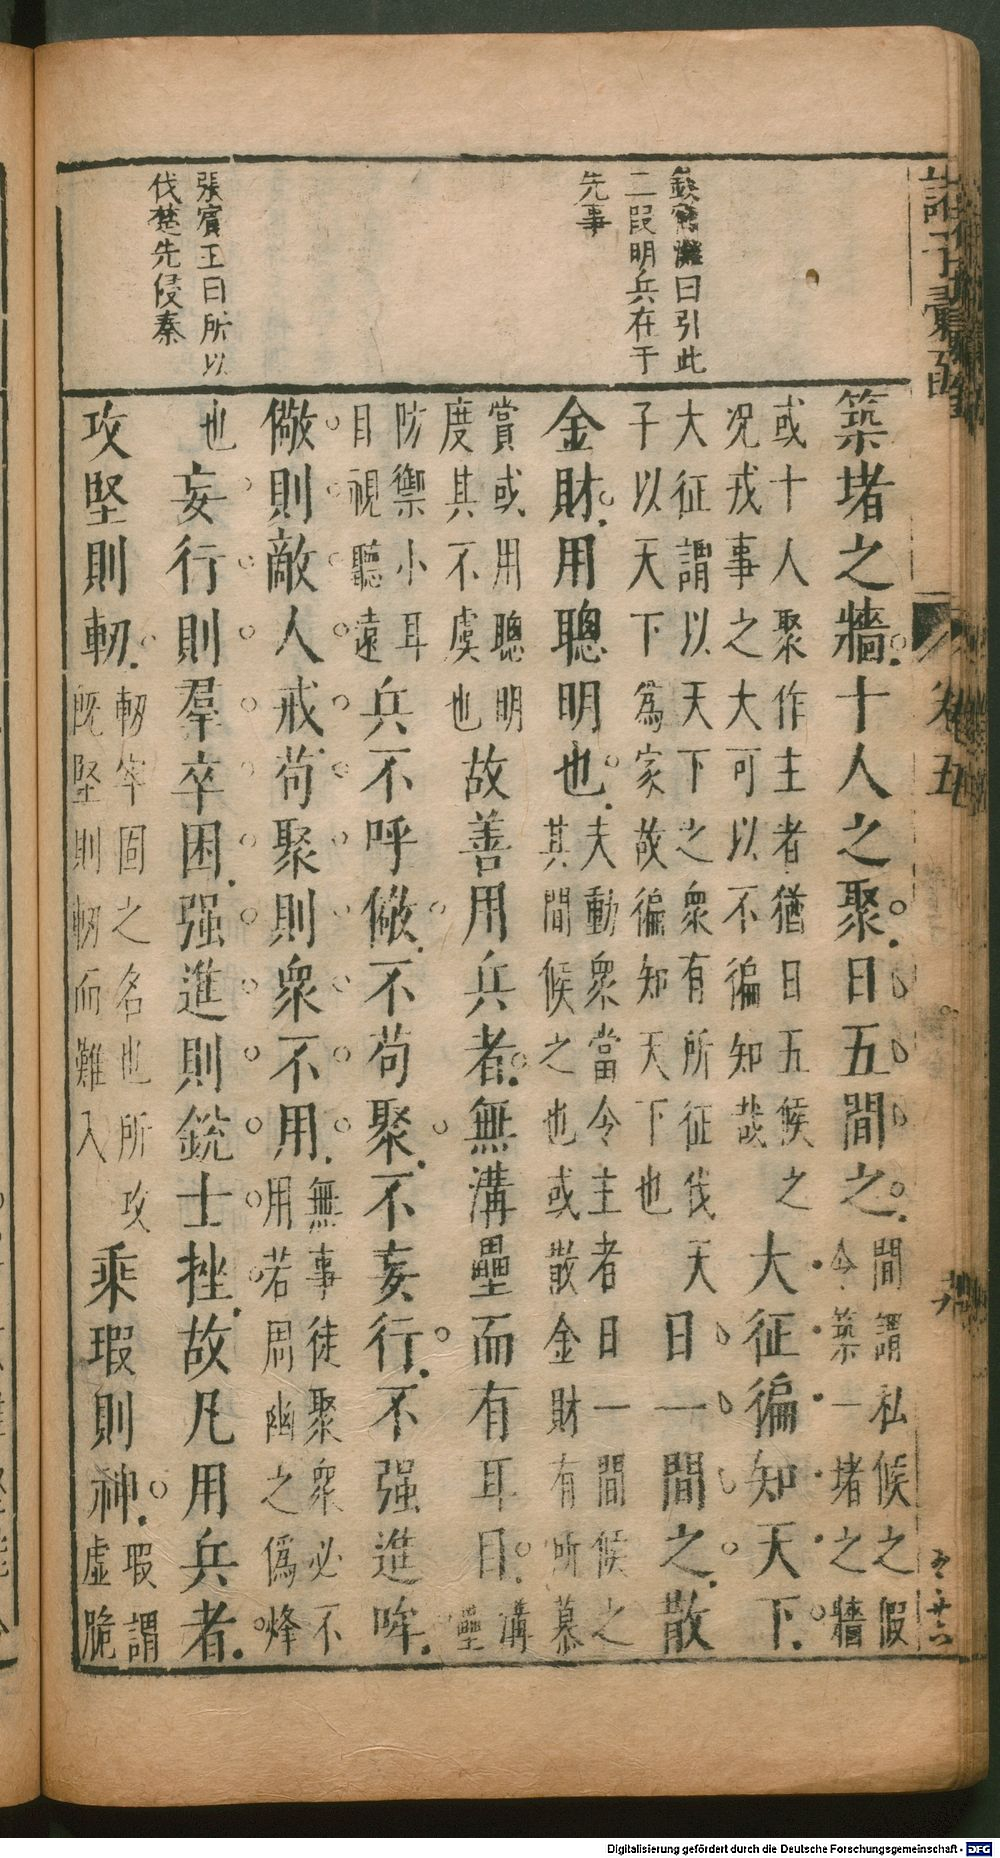 卷五
曰引此
二段明兵在于
先事
張賓王曰所以
伐楚先侵秦
築堵之牆十人之聚日五間之間謂私候之假
令築一堵之牆
或十人聚作主者猶日五候之
况戎事之大可以不徧知哉大征徧知天下
大征謂以天下之衆有所征伐天
子以天下為家故徧知天下也日一間之散
金財用聰明也夫動衆當令主者日一間候之
其間候之也或散金財有所慕
賞或用聰明
度其不虞也故善用兵者無溝壘而有耳目溝
壘
防禦小耳
目視聽遠兵不呼儆不苟聚不妄行不强進呼
儆則敵人戒苟聚則衆不用無事徒聚衆必不
用若周幽之僞烽
也妄行則羣卒困强進則銳士挫故凡用兵者
攻堅則軔軔牢固之名也所攻
旣堅則軔而難入乘瑕則神瑕謂
虛脆
Digitalisierung gefördert durch die Deutsche Forschungsgemeinschaft - DFG